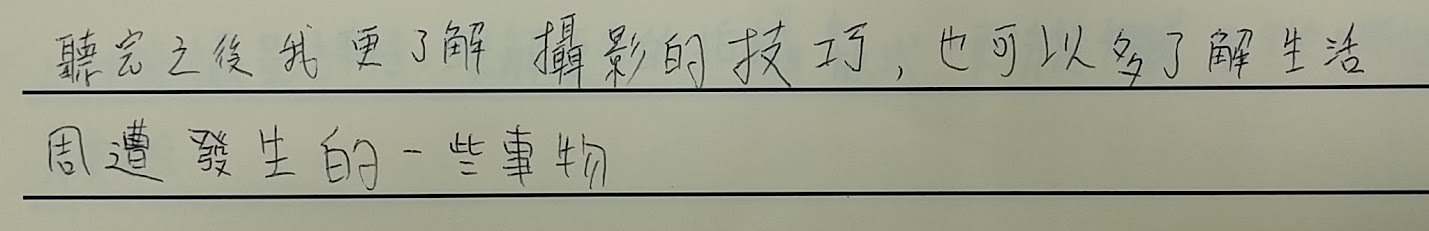 聽完之後我更了解攝影的技巧，也可以多了解生活
周遭發生的一些事物